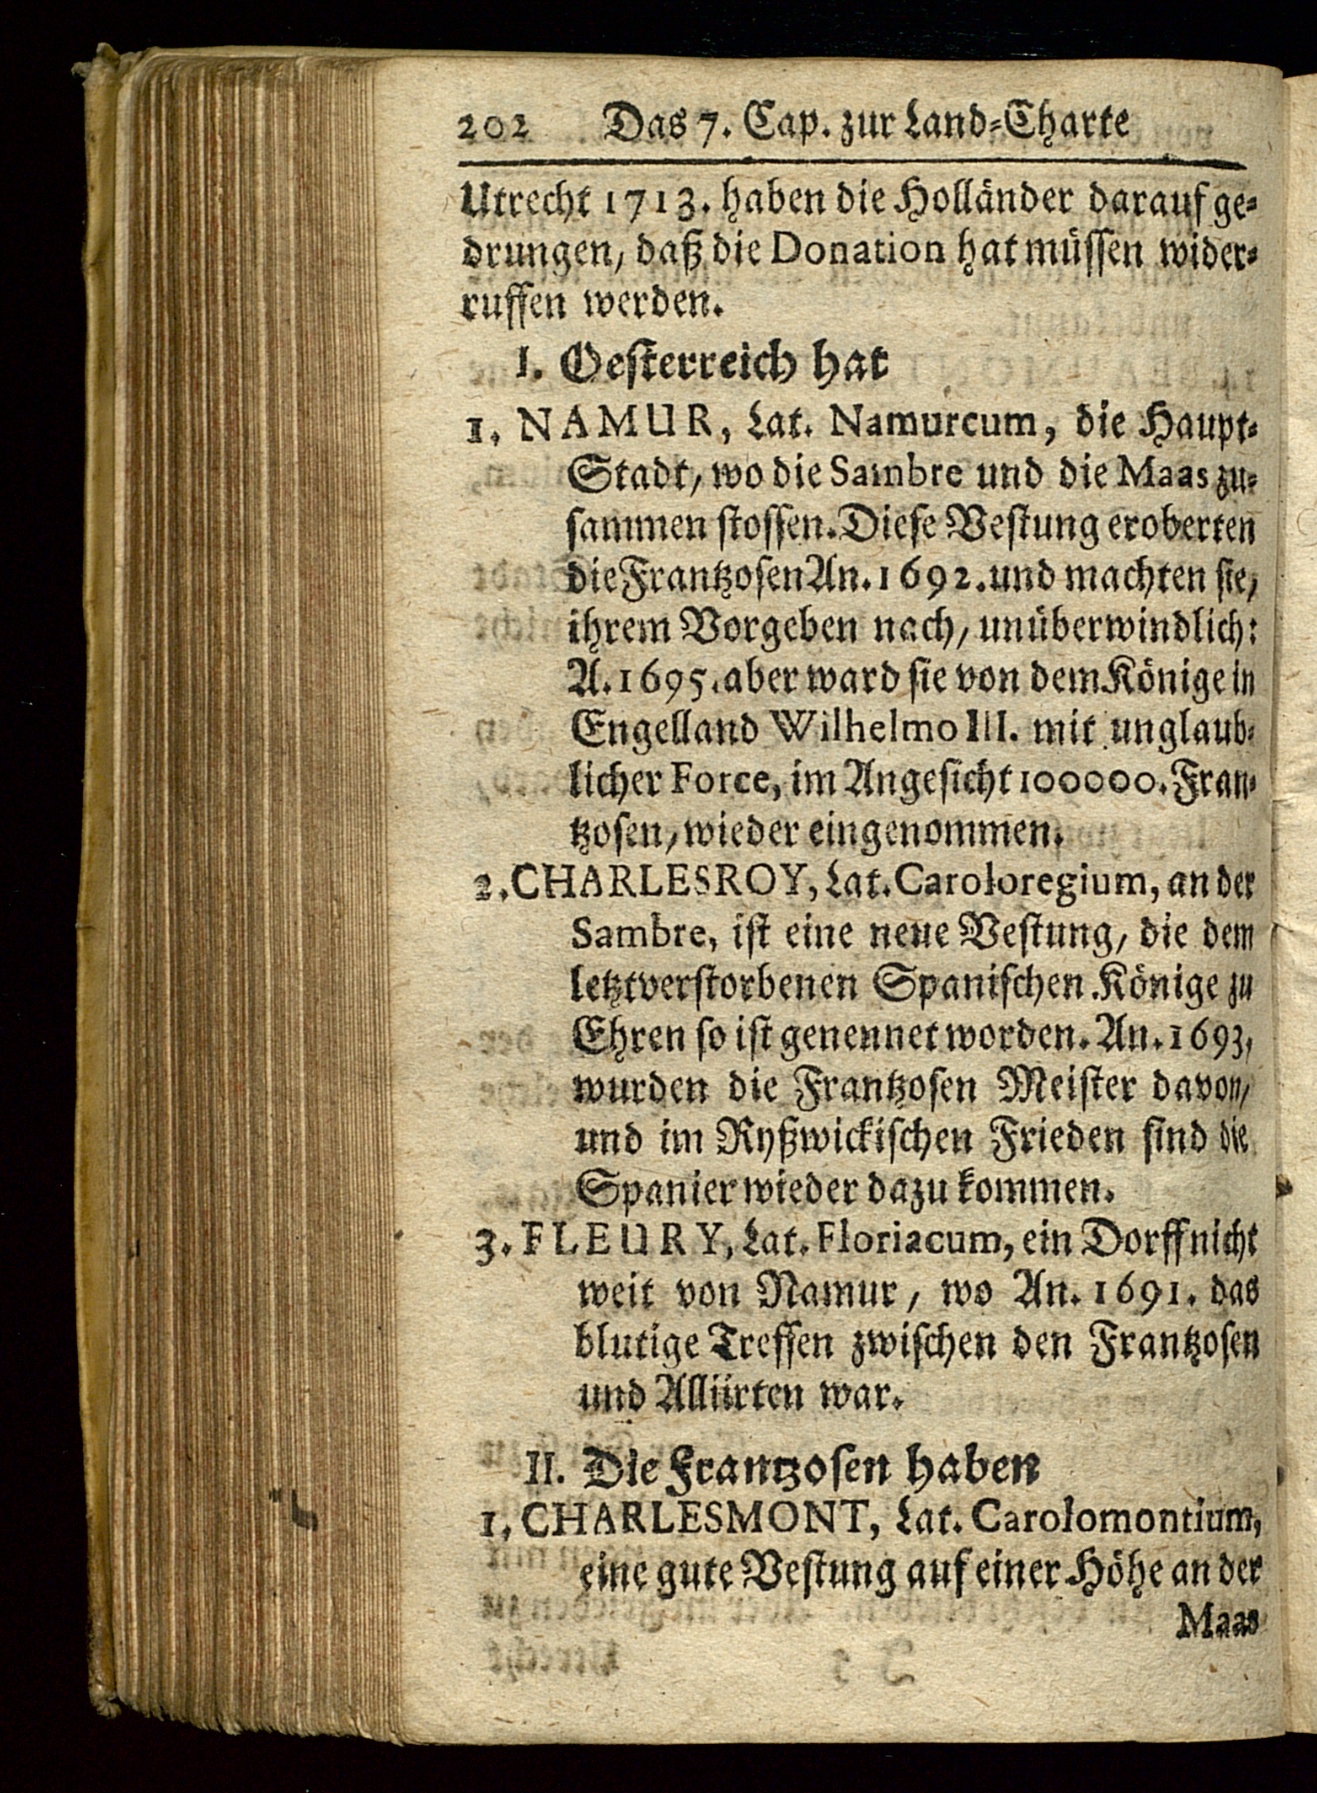 202 Das 7. Cap. zur Land-Charte
Utrecht 1713. haben die Holländer darauf ge-
drungen, daß die Donation hat müssen wider-
ruffen werden.
I. Oesterreich hat
1. NAMUR, Lat. Namurcum, die Haupt-
Stadt, wo die Sambre und die Maas zu-
sammen stossen. Diese Vestung eroberten
die Frantzosen An. 1692. und machten sie,
ihrem Vorgeben nach, unüberwindlich:
A. 1695. aber ward sie von dem Könige in
Engelland Wilhelmo III. mit unglaub-
licher Force, im Angesicht 100000. Fran-
tzosen, wieder eingenommen.
2. CHARLESROY, Lat. Caroloregium, an der
Sambre, ist eine neue Vestung, die dem
letztverstorbenen Spanischen Könige zu
Ehren so ist genennet worden. An. 1693,
wurden die Frantzosen Meister davon,
und im Ryßwickischen Frieden sind die
Spanier wieder dazu kommen.
3. FLEURY, Lat. Floriacum, ein Dorff nicht
weit von Namur, wo An. 1691. das
blutige Treffen zwischen den Frantzosen
und Alliirten war.
II. Die Frantzosen haben
1. CHARLESMONT, Lat. Carolomontium,
eine gute Vestung auf einer Höhe an der
Maas